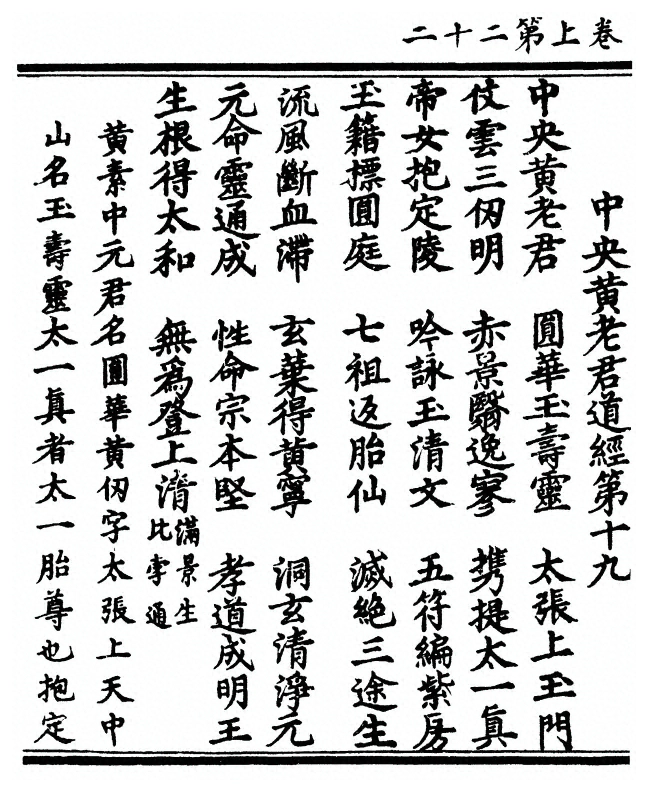 卷上第二十二
中央黃老君道經第十九
中央黃老君　圓華玉壽靈　太張上玉門
仗雲三仭明　赤景翳逸寥　携提太一眞
帝女抱定陵　吟詠玉清文　五符編紫房
玉籍標圓庭　七祖返胎仙　滅絶三途生
流風斷血滯　玄葉得黃寧　洞玄清淨元
元命靈通成　性命宗本堅　孝道成明王
生根得太和　無爲登上清
滿景生
比通
黃素中元君名圓華黃仭字太張上天中
山名玉壽靈太一眞者太一胎尊也抱定